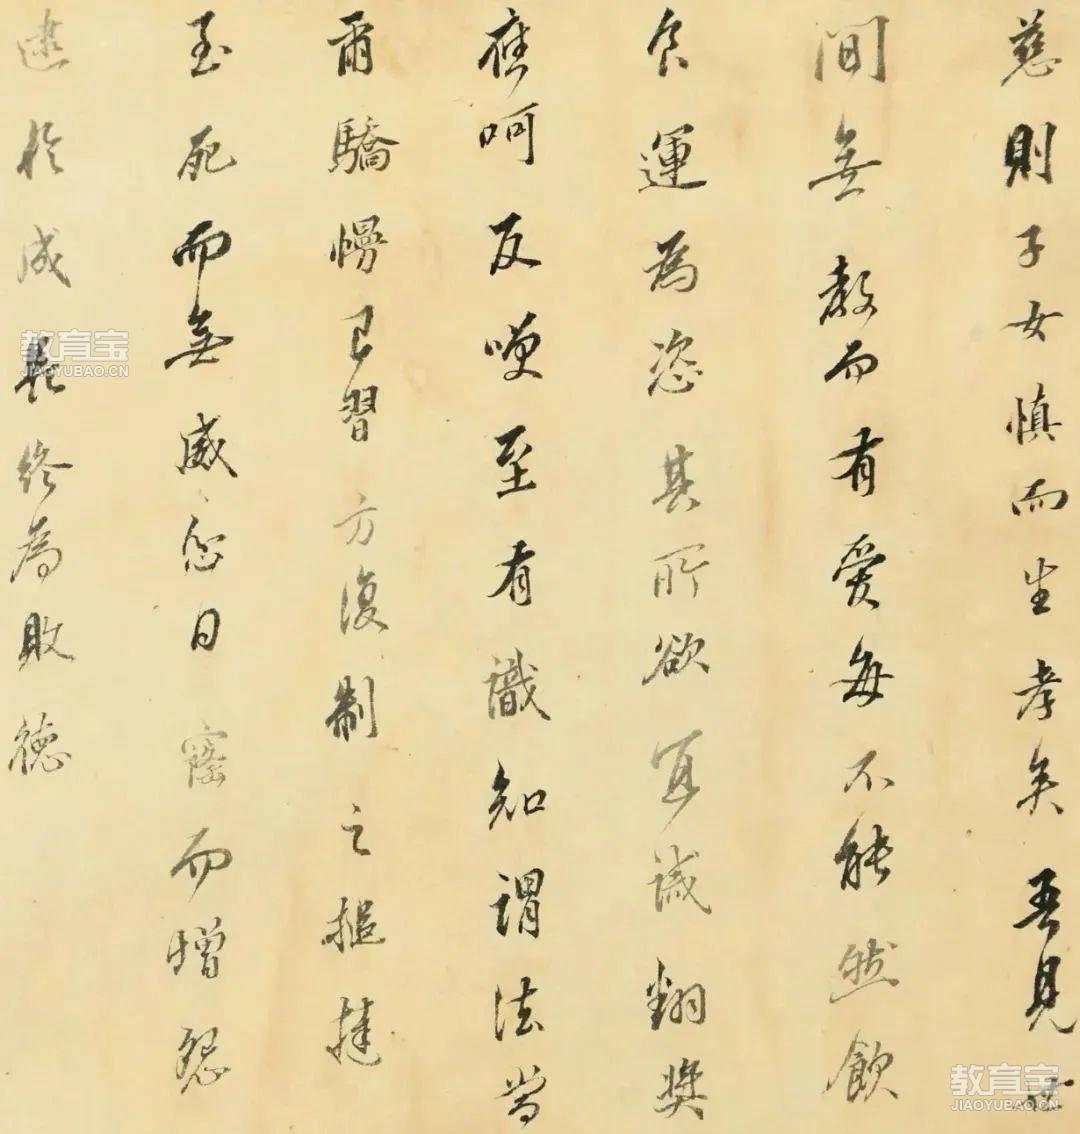 慈則子女慎而生孝矣吾見世
間無教而有愛每不能然飲
食運為恣其所欲宜誡翻獎
應呵反咲至有識知謂法當
爾驕慢已習方復制之捶撻
至死而無威忿日隆而增怨
逮於成長終為敗德
教育宝
JIAOYUBAO.CN
教育宝
JIAOYUBAO.CN